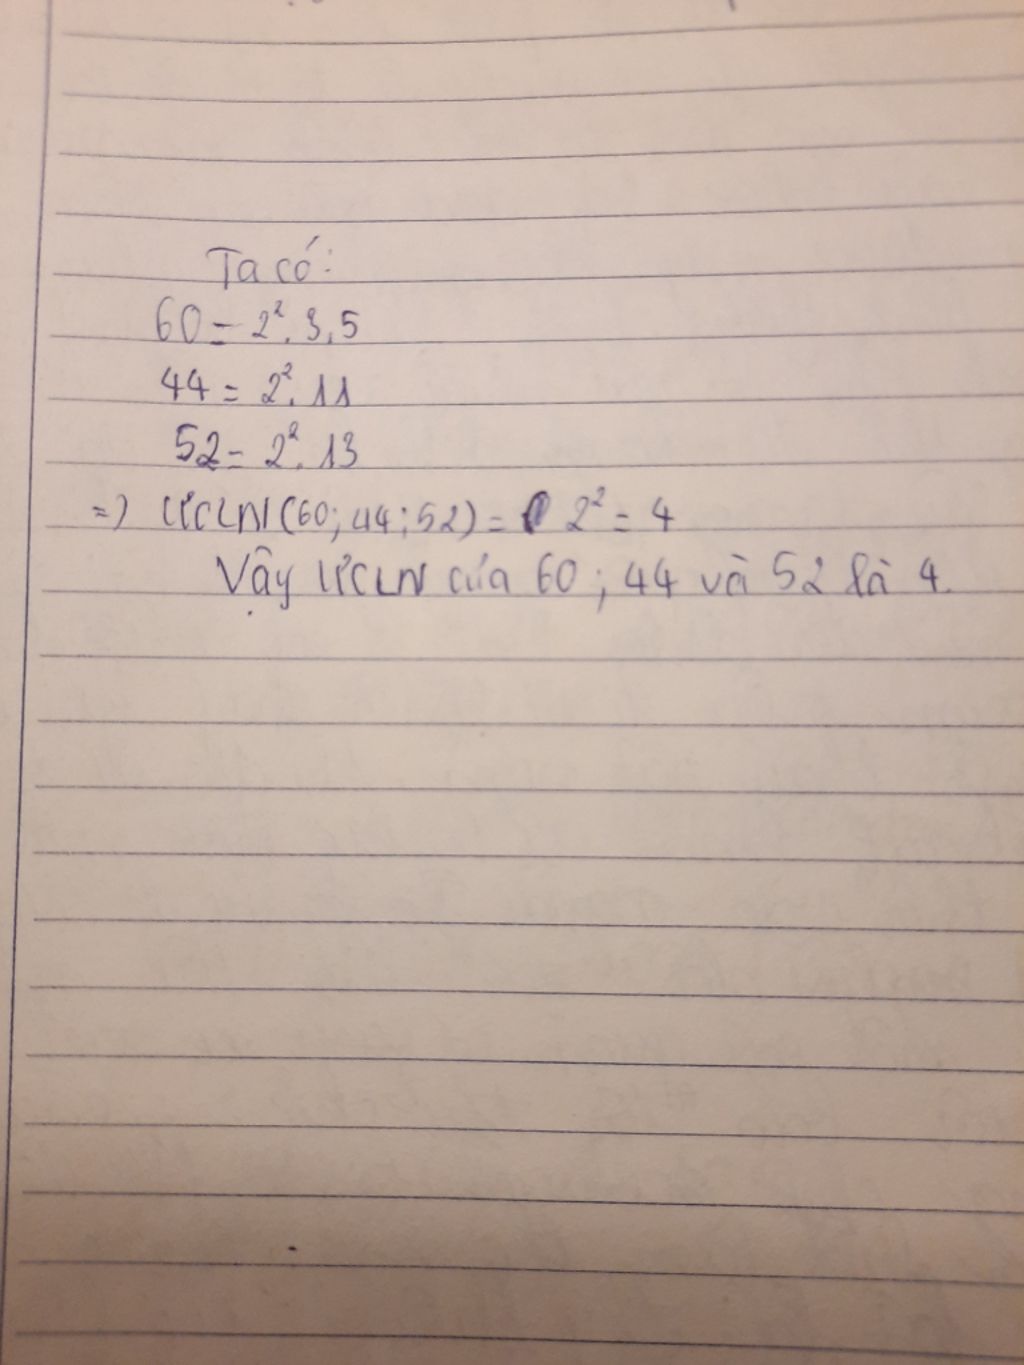 Ta có:
60 = 2². 3.5
44 = 2². 11
52 = 2². 13
=) ƯCLN(60; 44; 52) = 2² = 4
Vậy ƯCLN của 60 ; 44 và 52 là 4.